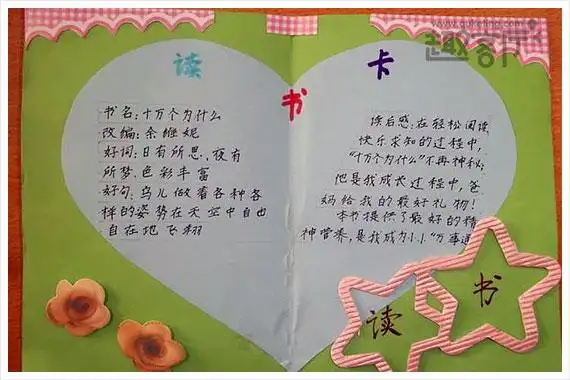 趣客
读书卡
书名:十万个为什么
改编:余
好词:日有所思、夜有
所梦、色彩丰富
好句:鸟儿做着各种各
样的姿势在天空中自由
自在地飞翔
读后感:在轻松阅读、
快乐求知的过程中,
"十万个为什么"不再神秘;
他是我成长过程中,爸
妈给我的最好礼物!
本书提供了最好的精
神营养,是我成为小小"万事通
读书